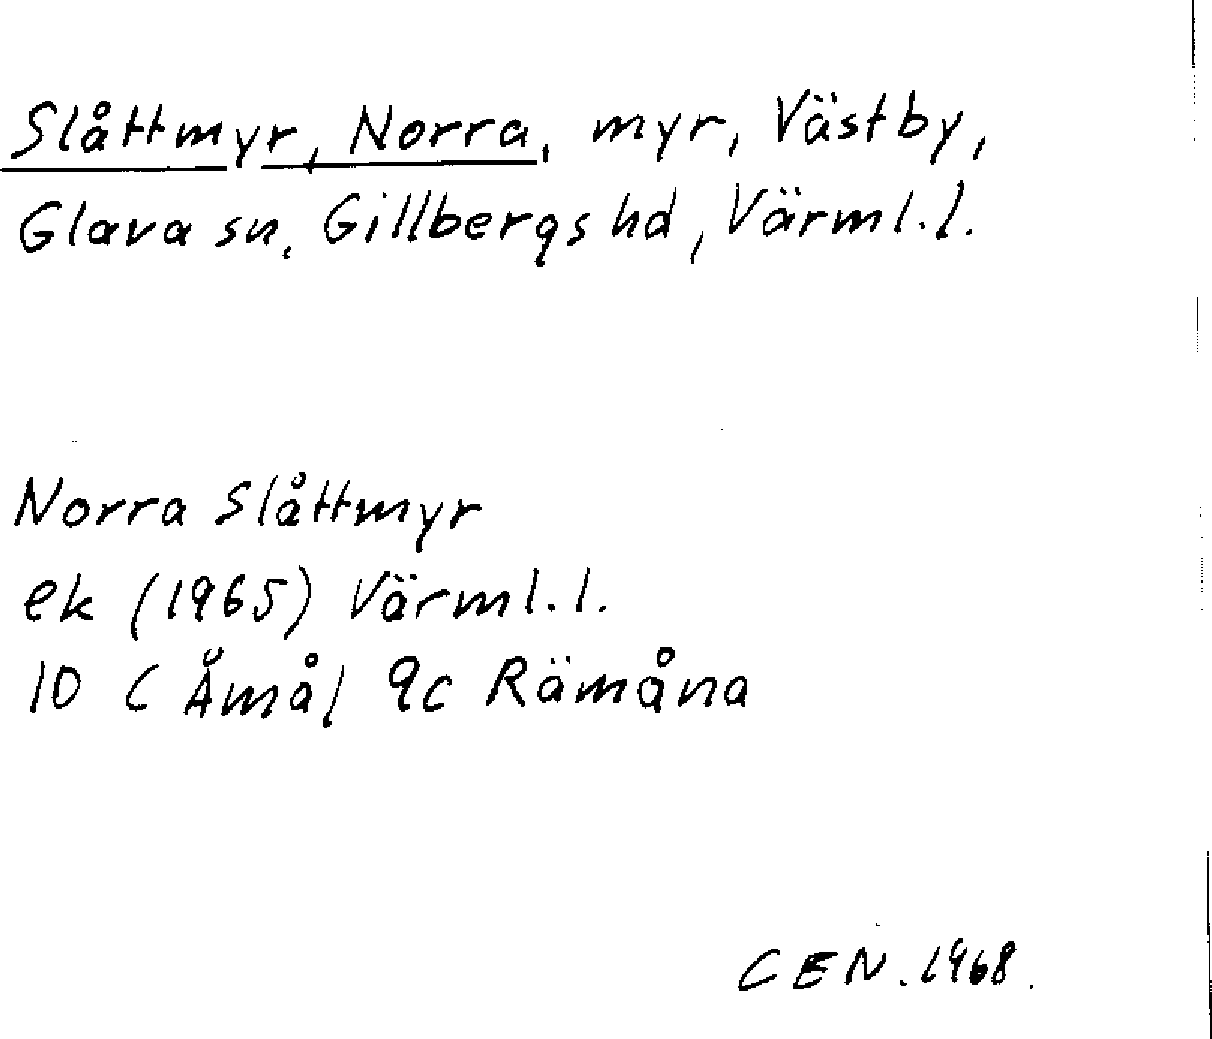 Slåttmyr, Norra, myr, Västby,
Glava sn, Gillbergs hd, Värml.l.
Norra Slåttmyr
ek (1965) Värml.l.
10 C Åmål 9c Rämåna
CEN. 1968.